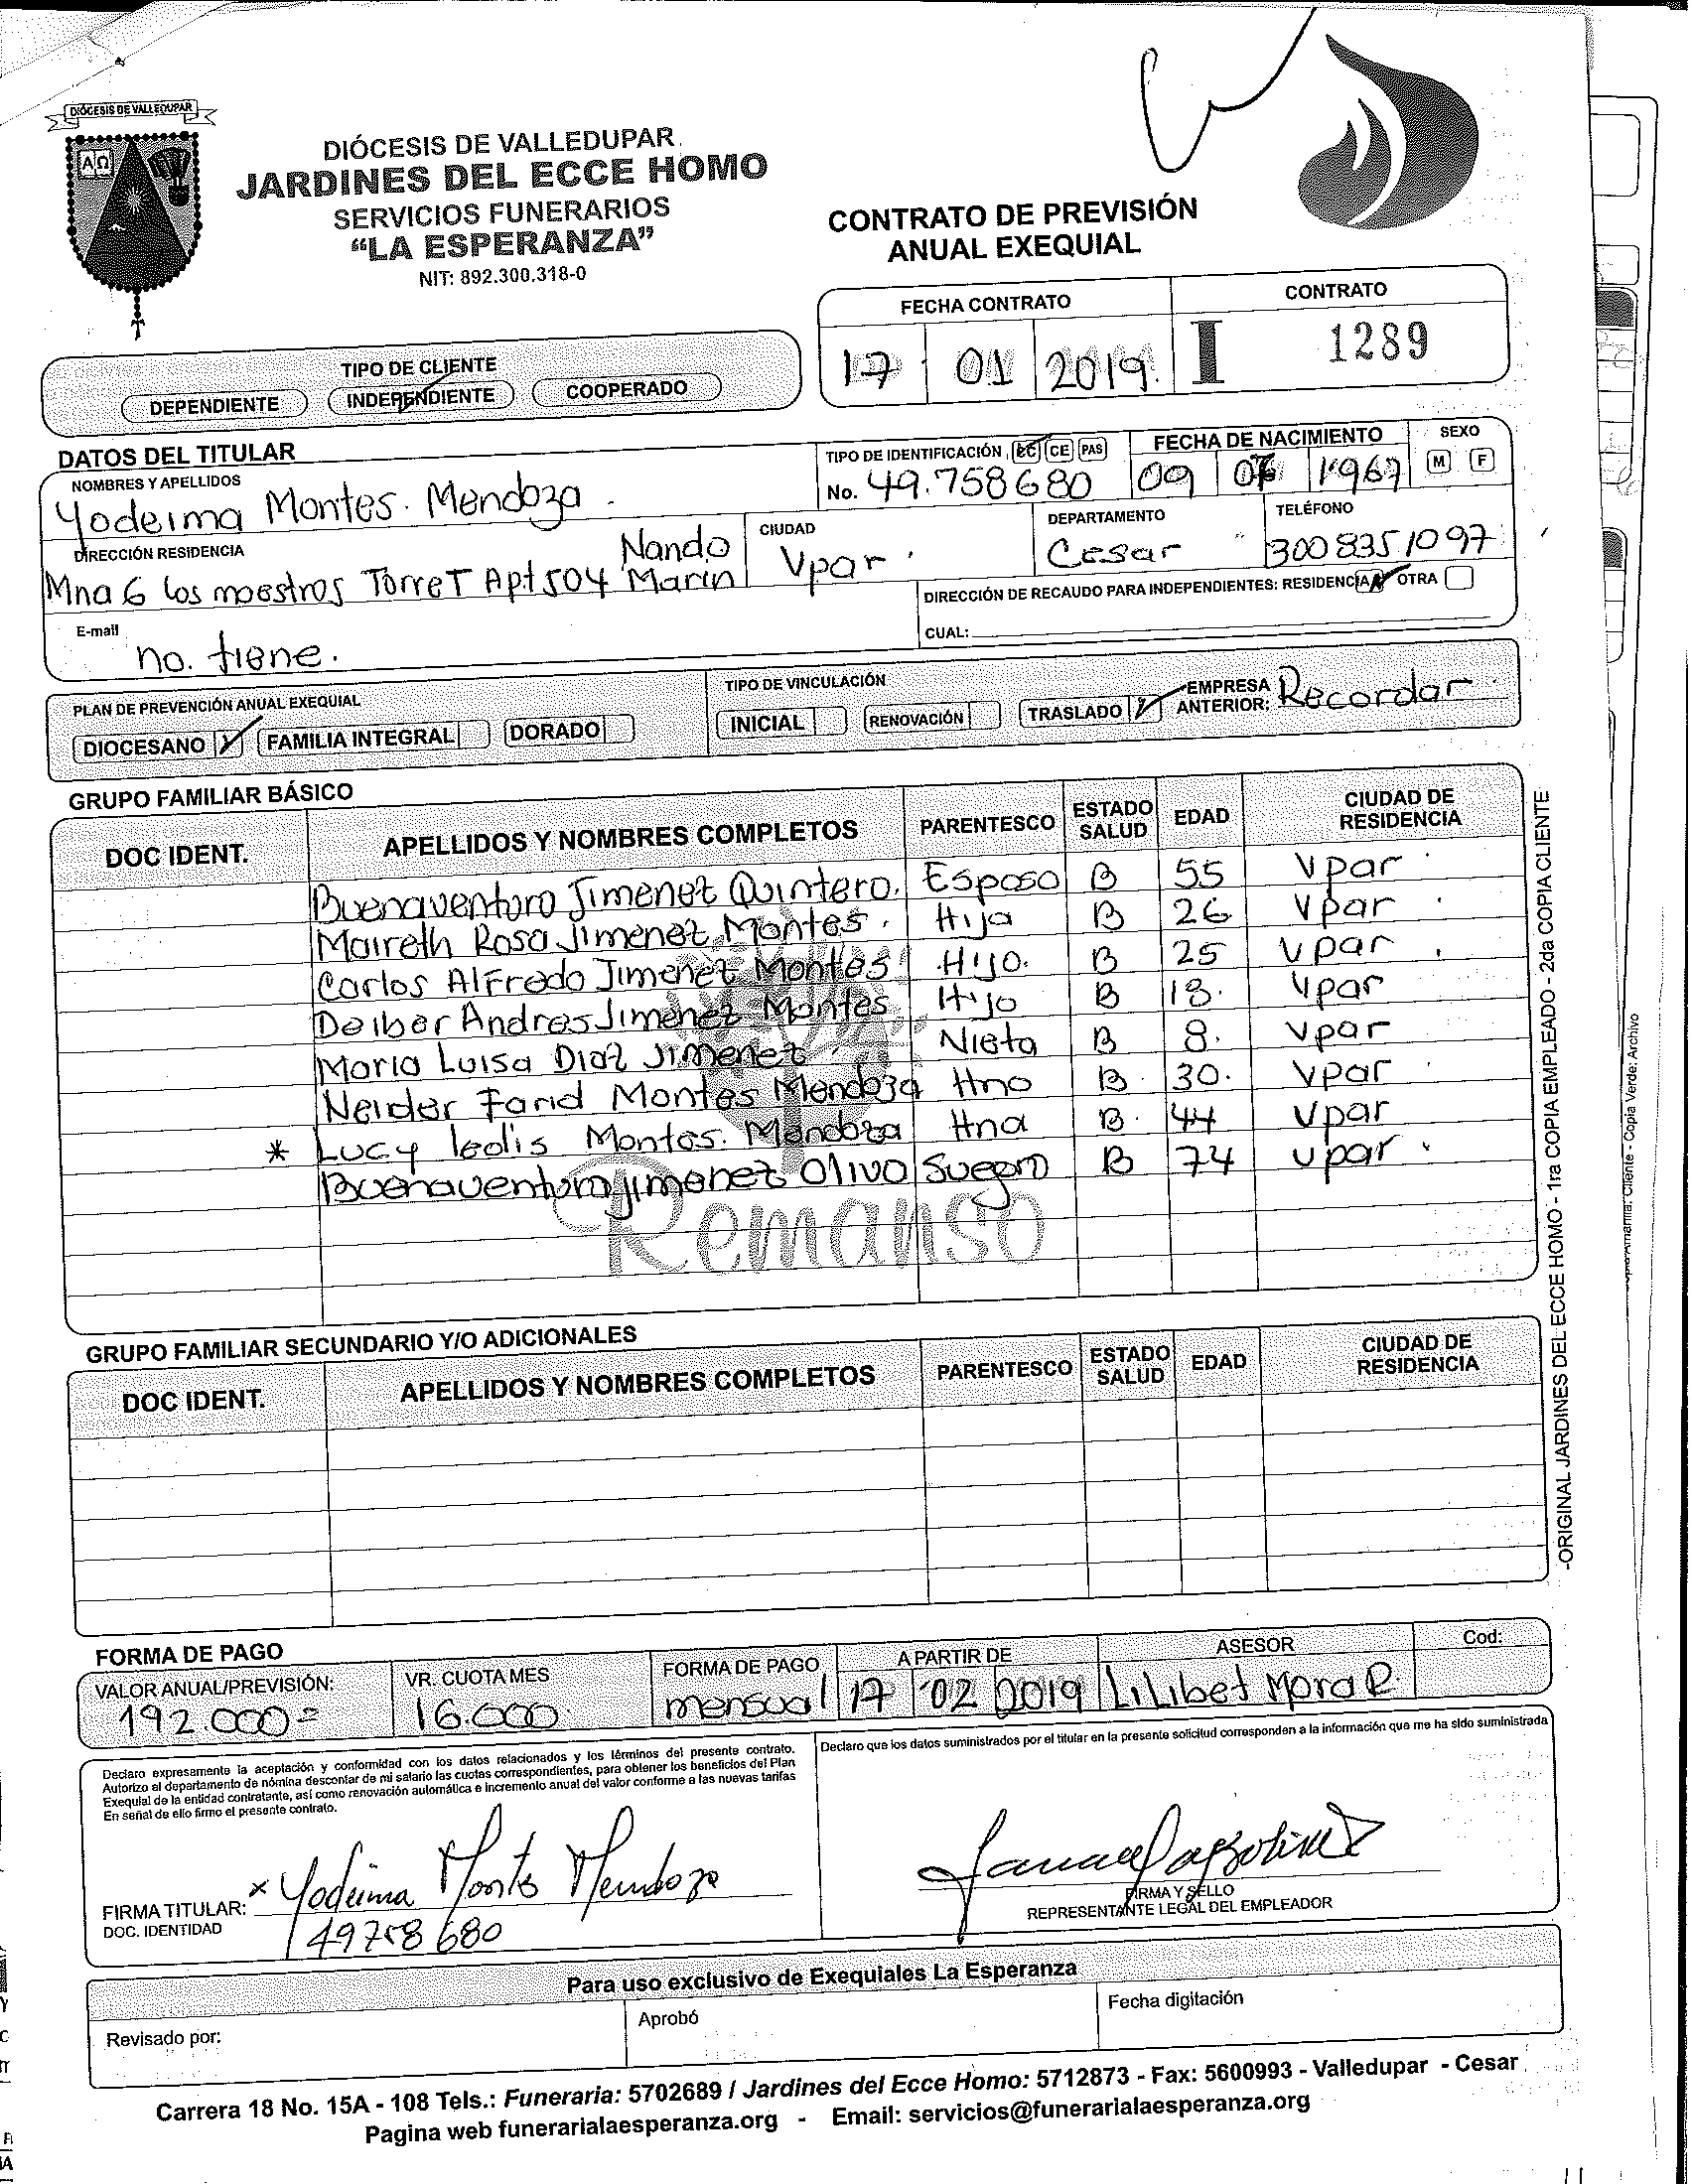 DIÓCESIS DE VALLEDUPAR
DIÓCESIS DE VALLEDUPAR
JARDINES DEL ECCE HOMO
SERVICIOS FUNERARIOS
"LA ESPERANZA"
NIT: 892.300.318-0
CONTRATO DE PREVISIÓN
ANUAL EXEQUIAL
FECHA CONTRATO CONTRATO
17 01 2019 I 1289
TIPO DE CLIENTE
DEPENDIENTE INDEPENDIENTE COOPERADO
DATOS DEL TITULAR
NOMBRES Y APELLIDOS
Yodeima Montes Mendoza
TIPO DE IDENTIFICACIÓN CC CE PAS
No. 49.758680
FECHA DE NACIMIENTO
09 1967
SEXO
M F
DIRECCIÓN RESIDENCIA
Mna 6 los maestros Torre T Apt 504 Nando Marin
CIUDAD
Vpar
DEPARTAMENTO
Cesar
TELÉFONO
3008351097
E-mail
no. tiene.
DIRECCIÓN DE RECAUDO PARA INDEPENDIENTES: RESIDENCIA OTRA
CUAL:
PLAN DE PREVENCIÓN ANUAL EXEQUIAL
DIOCESANO FAMILIA INTEGRAL DORADO
TIPO DE VINCULACIÓN
INICIAL RENOVACIÓN TRASLADO
EMPRESA ANTERIOR: Recordar
GRUPO FAMILIAR BÁSICO
DOC IDENT. APELLIDOS Y NOMBRES COMPLETOS PARENTESCO ESTADO SALUD EDAD CIUDAD DE RESIDENCIA
Buenaventura Jimenez Quintero. Esposo B 55 Vpar
Maireth Rosa Jimenez Montes. Hija B 26 Vpar
Carlos Alfredo Jimenez Montes Hijo. B 25 Vpar
Deiber Andres Jimenez Montes Hijo B 18. Vpar
Maria Luisa Diaz Jimenez Nieta B 8. Vpar
Neider Farid Montes Mendoza Hno B 30. Vpar
* Lucy leolis Montes. Mendoza Hna B 44 Vpar
Buenaventura Jimenez Olivo Suegro B 74 Vpar
Remanso
GRUPO FAMILIAR SECUNDARIO Y/O ADICIONALES
DOC IDENT. APELLIDOS Y NOMBRES COMPLETOS PARENTESCO ESTADO SALUD EDAD CIUDAD DE RESIDENCIA
-ORIGINAL JARDINES DEL ECCE HOMO - 1ra COPIA EMPLEADO - 2da COPIA CLIENTE
Cliente - Copia Verde: Archivo
FORMA DE PAGO
VALOR ANUAL/PREVISIÓN: VR. CUOTA MES FORMA DE PAGO A PARTIR DE ASESOR Cod:
192.000= 16.000 mensual 17 02 2019 Lilibet Mora R
Declaro expresamente la aceptación y conformidad con los datos relacionados y los términos del presente contrato.
Autorizo el departamento de nómina descontar de mi salario las cuotas correspondientes, para obtener los beneficios del Plan
Exequial de la entidad contratante, así como renovación automática e incremento anual del valor conforme a las nuevas tarifas
En señal de ello firmo el presente contrato.
Declaro que los datos suministrados por el titular en la presente solicitud corresponden a la información que me ha sido suministrada
FIRMA TITULAR: x Yodeima Montes Mendoza
DOC. IDENTIDAD 49758680
FIRMA Y SELLO
REPRESENTANTE LEGAL DEL EMPLEADOR
Para uso exclusivo de Exequiales La Esperanza
Revisado por: Aprobó Fecha digitación
Carrera 18 No. 15A - 108 Tels.: Funeraria: 5702689 / Jardines del Ecce Homo: 5712873 - Fax: 5600993 - Valledupar - Cesar
Pagina web funerarialaesperanza.org - Email: servicios@funerarialaesperanza.org